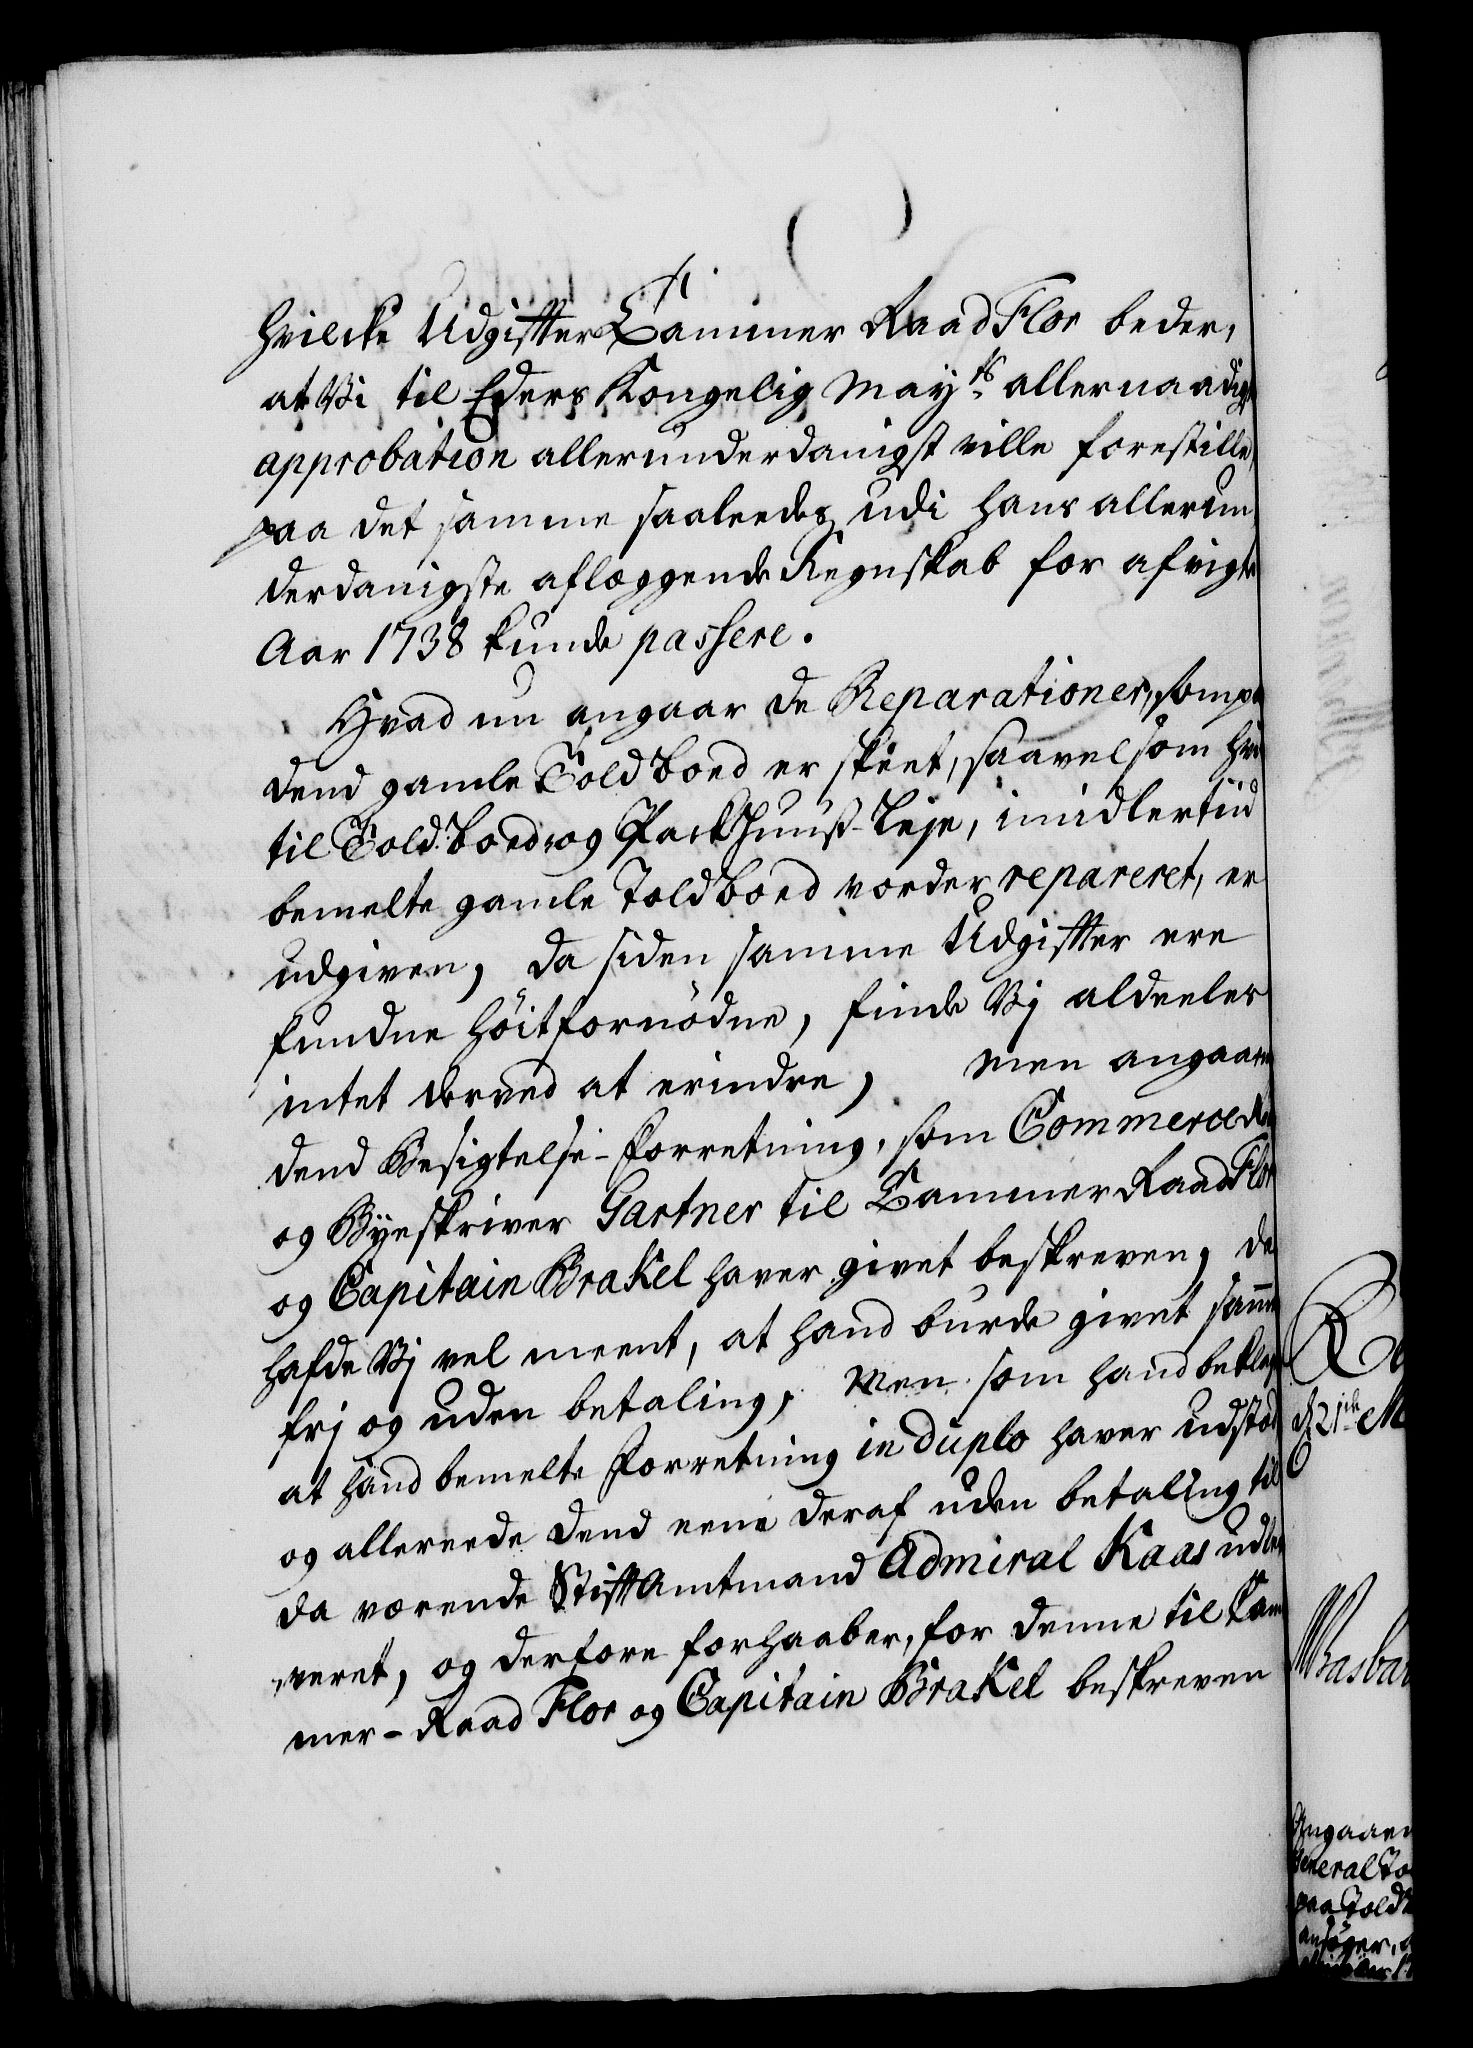 hvilcke Udgiffter Cammer Raad Flor beder,
at Vi til Eders Kongelig Mayts allernaadigst
approbation allerunderdanigst ville forestille,
paa det samme saaledes udi hans allerun
derdanigste aflæggende Regnskab for afvigte
Aar 1738 kunde passere.
Hvad nu angaar de Reparationer, som paa
dend gamle Toldboed er skeet, saavelsom hvis
til Toldboed og Packhuuss-Leje, imidlertiid
bemelte gamle Toldboed vorder repareret, er
udgiven, da siden samme Udgiffter ere
fundne høitfornødne, finde Vj aldeeles
intet derved at erindre, Men angaaende
dend Besigtelse-Forretning, som Commerce
og Byeskriver Gartner til Cammer Raad Flor
og Capitain Brakel haver givet beskreven, da
hafde Vj vel meent, at hand burde givet samme
frj og uden betaling, Men som hand
at hand bemelte Forretning in duplo haver udstæd
og allereede dend eene deraf uden betaling til
da værende Stifftamtmand Admiral Kaas udle
veret, og derfore forhaaber, for denne til Cam
mer-Raad Flor og Capitain Brakel beskreven
d. 21de M
Angaaen
General To
paa Told
ansøger,